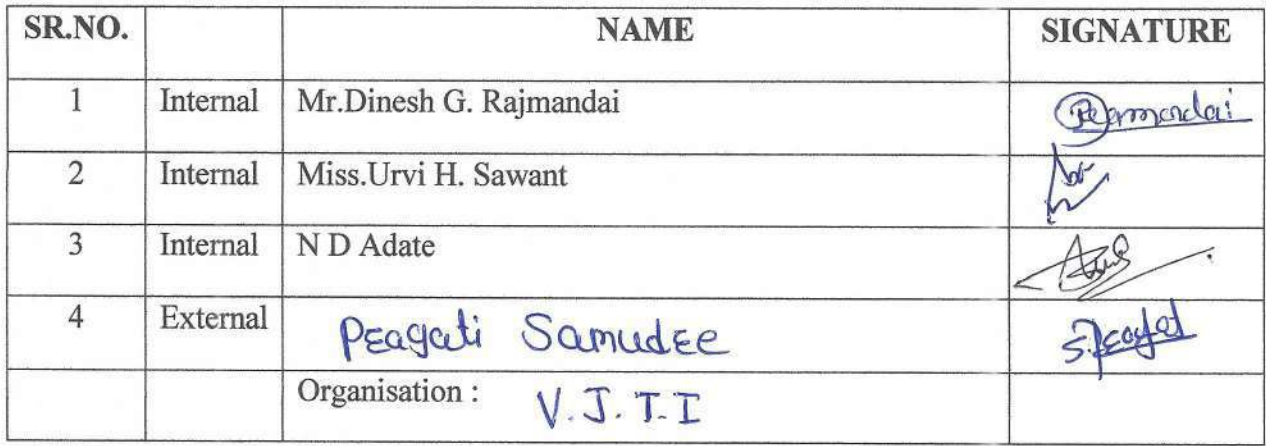 SR.NO. NAME SIGNATURE
1 Internal Mr.Dinesh G. Rajmandai
2 Internal Miss.Urvi H. Sawant
3 Internal N D Adate
4 External Pragati Samudre
Organisation : V.J.T.I